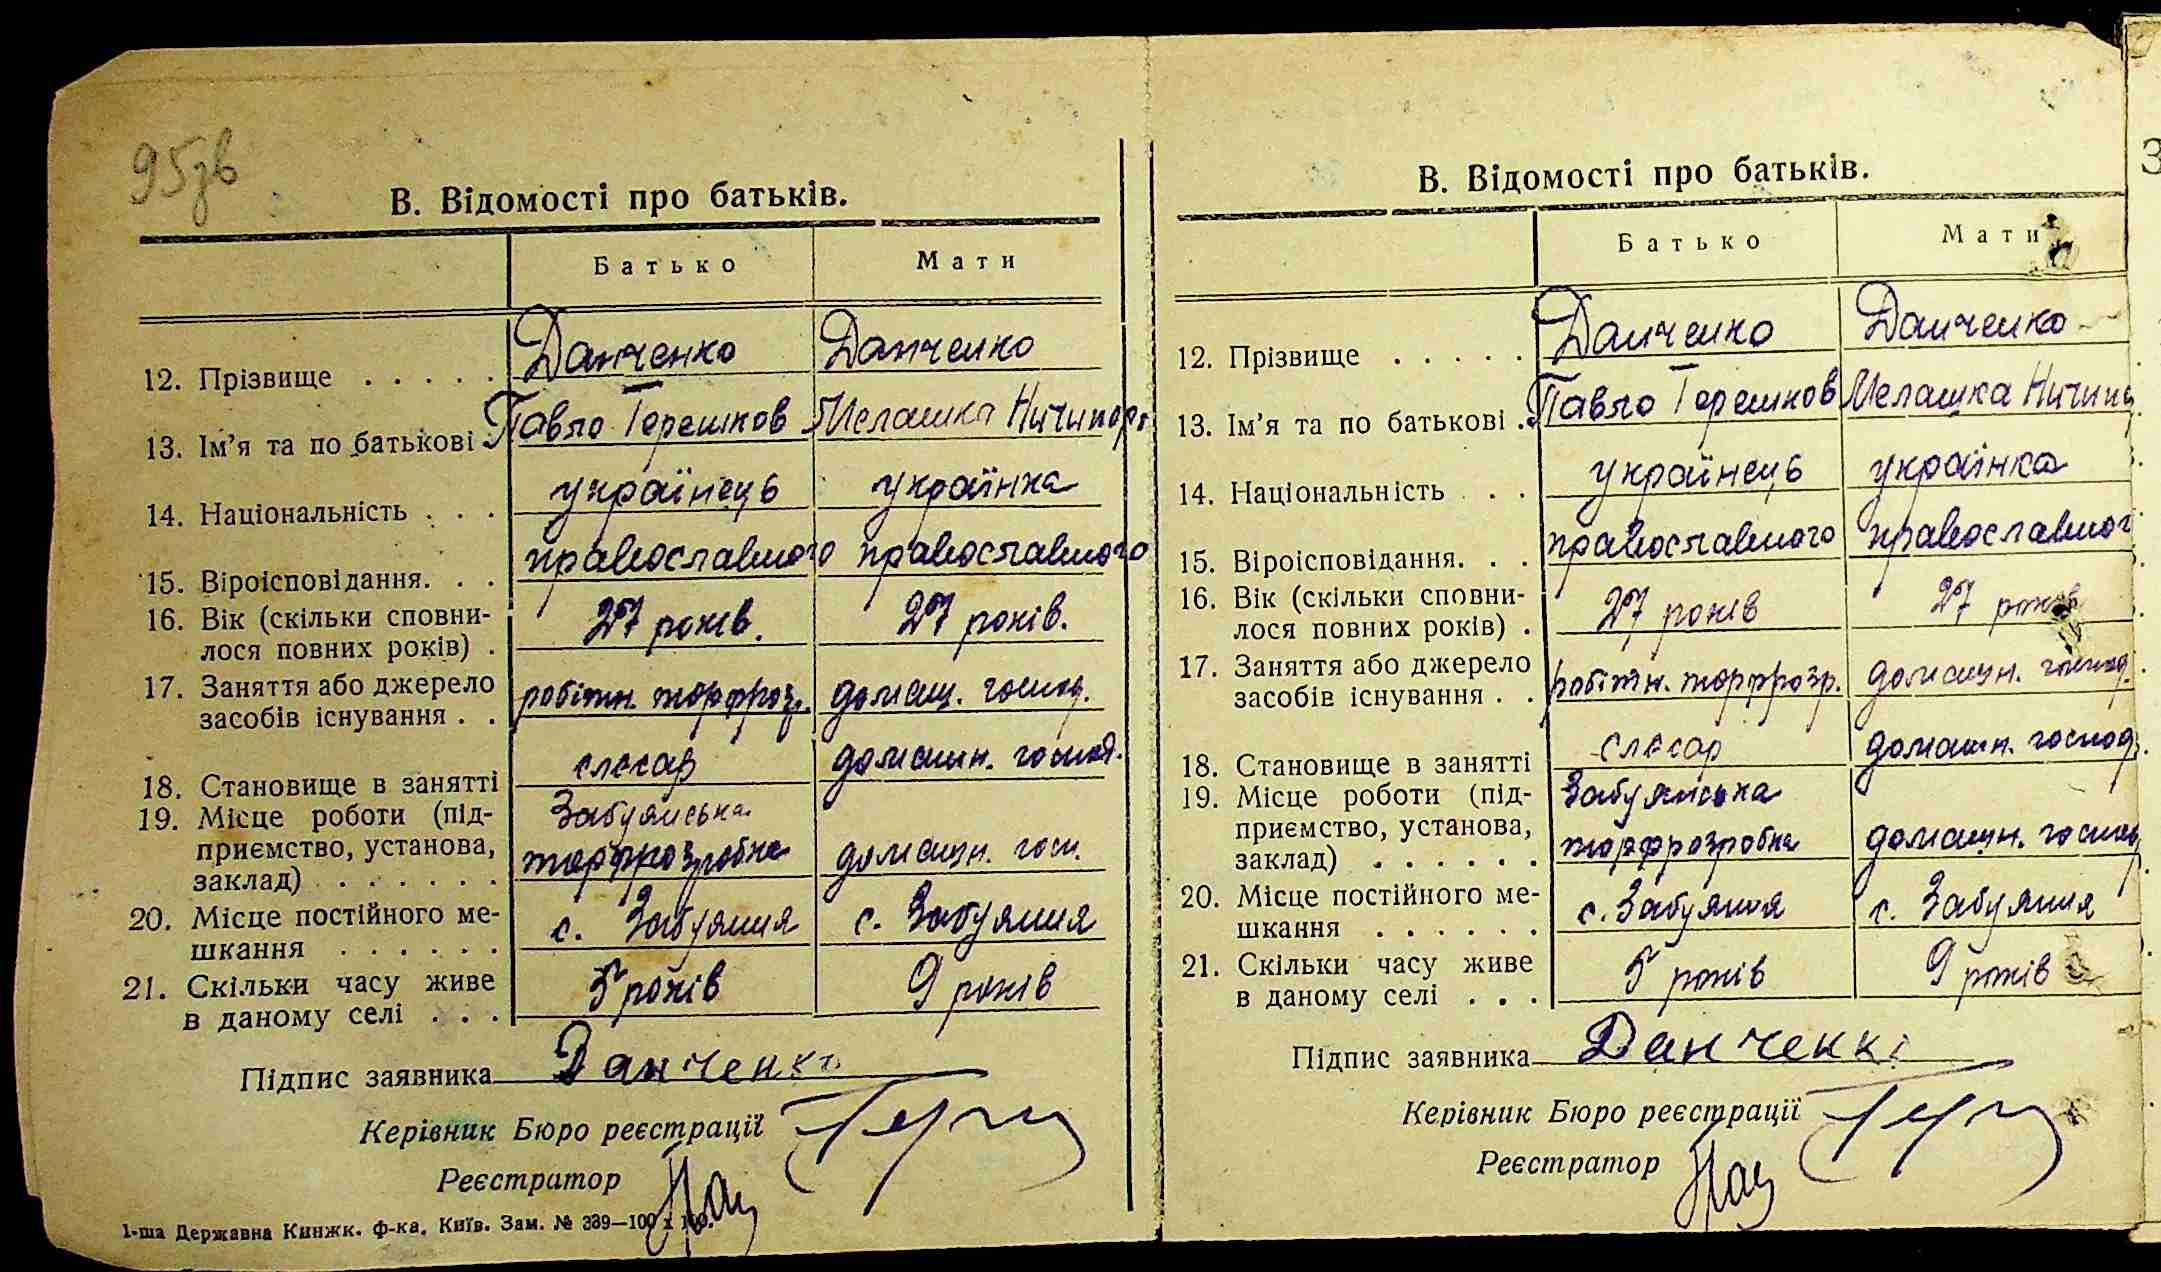 95зв
В. Відомості про батьків.
Батько Мати
12. Прізвище . . . . . Данченко Данченко
13. Ім’я та по батькові Павло Терешков Мелашка Ничипор
14. Національність . . . українець українка
15. Віроісповідання. . . православного православного
16. Вік (скільки сповни-
лося повних років) . 27 років. 27 років.
17. Заняття або джерело
засобів існування . . робітн. торфроз. домашн. господ.
18. Становище в занятті слєсар домашн. господ.
19. Місце роботи (під- Забуянська
приємство, установа,
заклад) . . . . . . торфрозробка домашн. госп.
20. Місце постійного ме-
шкання . . . . . . с. Забуяння с. Забуяння
21. Скільки часу живе
в даному селі . . . 5 років 9 років
Підпис заявника Данченко
Керівник Бюро реєстрації
Реєстратор
1-ша Державна Книжк. ф-ка. Київ. Зам. № 339—100 х 100.
В. Відомості про батьків.
Батько Мати
12. Прізвище . . . . . Данченко Данченко
13. Ім’я та по батькові . Павло Терешков Мелашка Ничип
14. Національність . . українець українка
15. Віроісповідання. . . православного православного
16. Вік (скільки сповни-
лося повних років) . 27 років 27 років
17. Заняття або джерело
засобів існування . . робітн. торфрозр. домашн. господ.
18. Становище в занятті слєсар домашн. господ.
19. Місце роботи (під- Забуянська
приємство, установа,
заклад) . . . . . . торфрозробка домашн. господ
20. Місце постійного ме-
шкання . . . . . . с. Забуяння с. Забуяння
21. Скільки часу живе
в даному селі . . . 5 років 9 років
Підпис заявника Данченко
Керівник Бюро реєстрації
Реєстратор